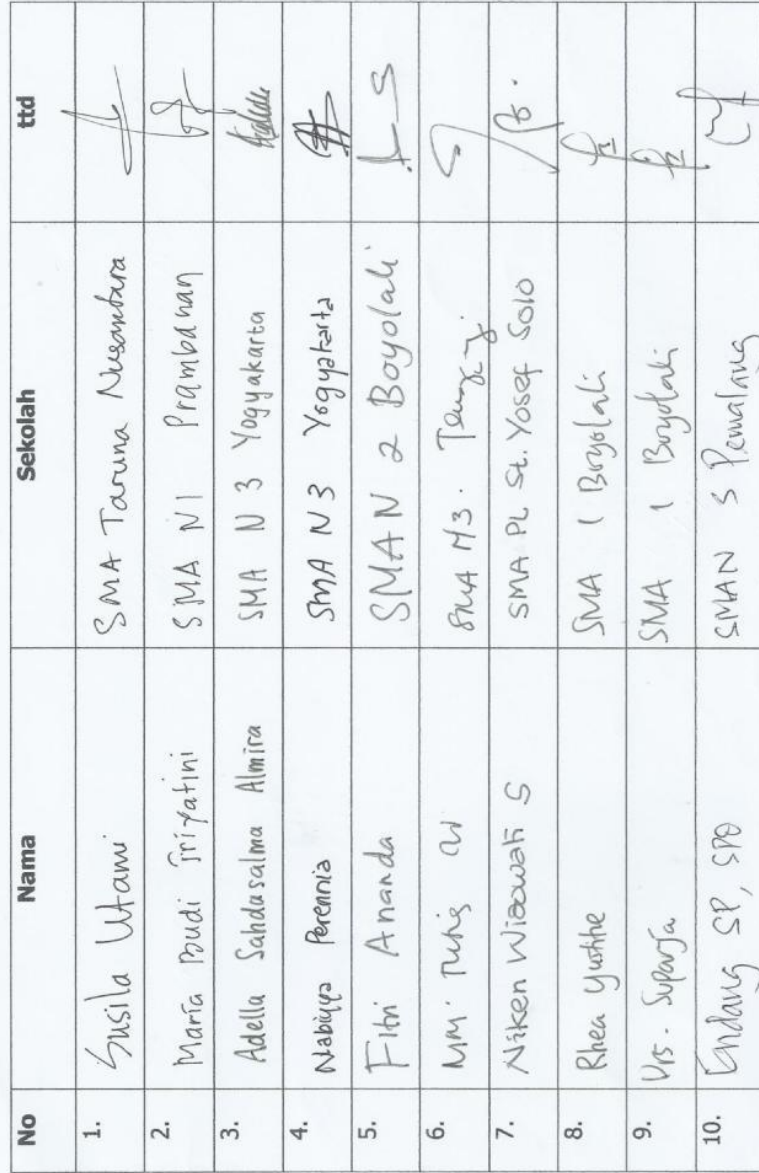 No Nama Sekolah ttd
1. Susila Utami SMA Taruna Nusantara
2. Maria Budi Triyatini SMA N1 Prambanan
3. Adella Sahdusalma Almira SMA N 3 Yogyakarta
4. Nabiyya Perennia SMA N 3 Yogyakarta
5. Fitri Ananda SMAN 2 Boyolali
6. SMA N3.
7. Niken Wisowati S SMA PL St. Yosef Solo
8. Rhea Yustthe SMA 1 Boyolali
9. Drs. Suparja SMA 1 Boyolali
10. Endang SP, SPD SMAN 3 Pemalang